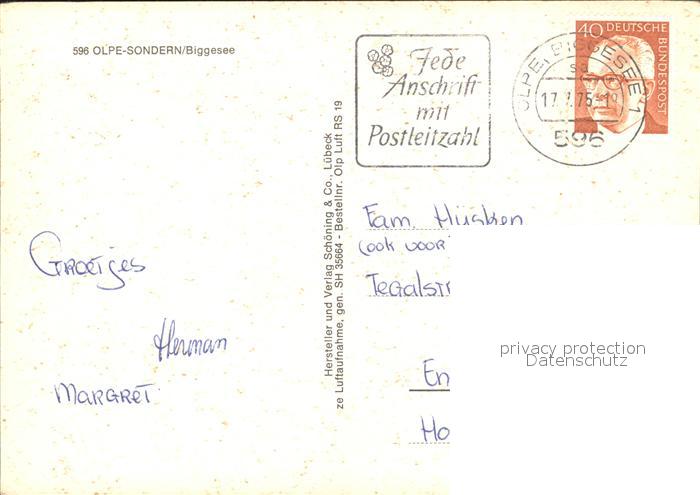 596 OLPE-SONDERN/Biggesee
Jede
Anschrift
mit
Postleitzahl
40 DEUTSCHE
BUNDESPOST
OLPE, BIGGESEE 1
sa
17.7.75-
596
Hersteller und Verlag Schöning & Co., Lübeck
ze Luftaufnahme, gen. SH 35664 - Bestellnr. Olp Luft RS 19
Groetjes
Herman
MARGRET
Fam. Hüsken
(ook voor
Tegalstr
En
Ho
privacy protection
Datenschutz